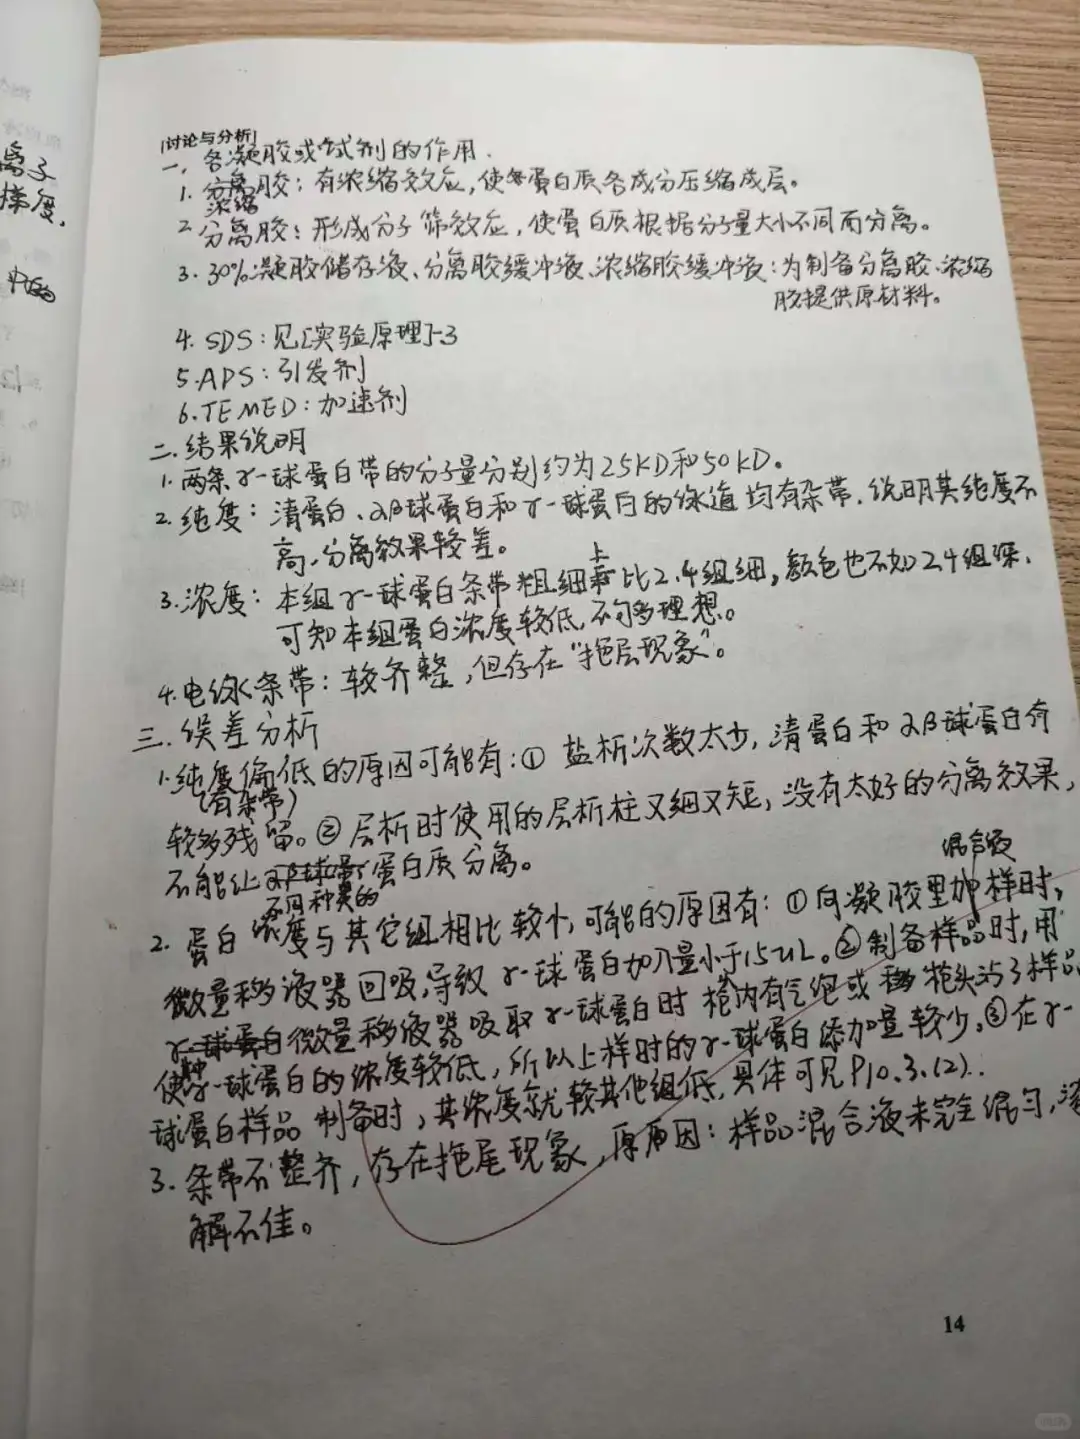 离子
梯度,
中的
[讨论与分析]
一、各凝胶或试剂的作用.
1. 分离胶: 有浓缩效应, 使蛋白质各成分压缩成层。
浓缩
2. 分离胶: 形成分子筛效应, 使蛋白质根据分子量大小不同而分离。
3. 30%凝胶储存液、分离胶缓冲液、浓缩胶缓冲液: 为制备分离胶、浓缩
胶提供原材料。
4. SDS: 见[实验原理]-3
5. APS: 引发剂
6. TEMED: 加速剂
二. 结果说明
1. 两条γ-球蛋白带的分子量分别约为25KD和50KD。
2. 纯度: 清蛋白、αβ球蛋白和γ-球蛋白的泳道均有杂带, 说明其纯度不
高, 分离效果较差。
上
3. 浓度: 本组γ-球蛋白条带粗细比2.4组细, 颜色也不如2.4组深,
可知本组蛋白浓度较低, 不够理想。
4. 电泳条带: 较齐整, 但存在"拖尾现象"。
三. 误差分析
1. 纯度偏低的原因可能有: ① 盐析次数太少, 清蛋白和αβ球蛋白有
(有杂带)
较多残留。② 层析时使用的层析柱又细又短, 没有太好的分离效果,
不能让αβ球蛋蛋白质分离。
不同种类的
混合液
2. 蛋白浓度与其它组相比较小, 可能的原因有: ① 向凝胶里加样时,
微量移液器回吸, 导致γ-球蛋白加入量小于15uL。② 制备样品时, 用
γ-球蛋白微量移液器吸取γ-球蛋白时枪内有气泡或枪头沾了样品
使γ-球蛋白的浓度较低, 所以上样时的γ-球蛋白添加量较少。③ 在γ-
球蛋白样品制备时, 其浓度就较其他组低, 具体可见P10.3.(2)..
3. 条带不整齐, 存在拖尾现象, 原因: 样品混合液未完全混匀, 溶
解不佳。
14